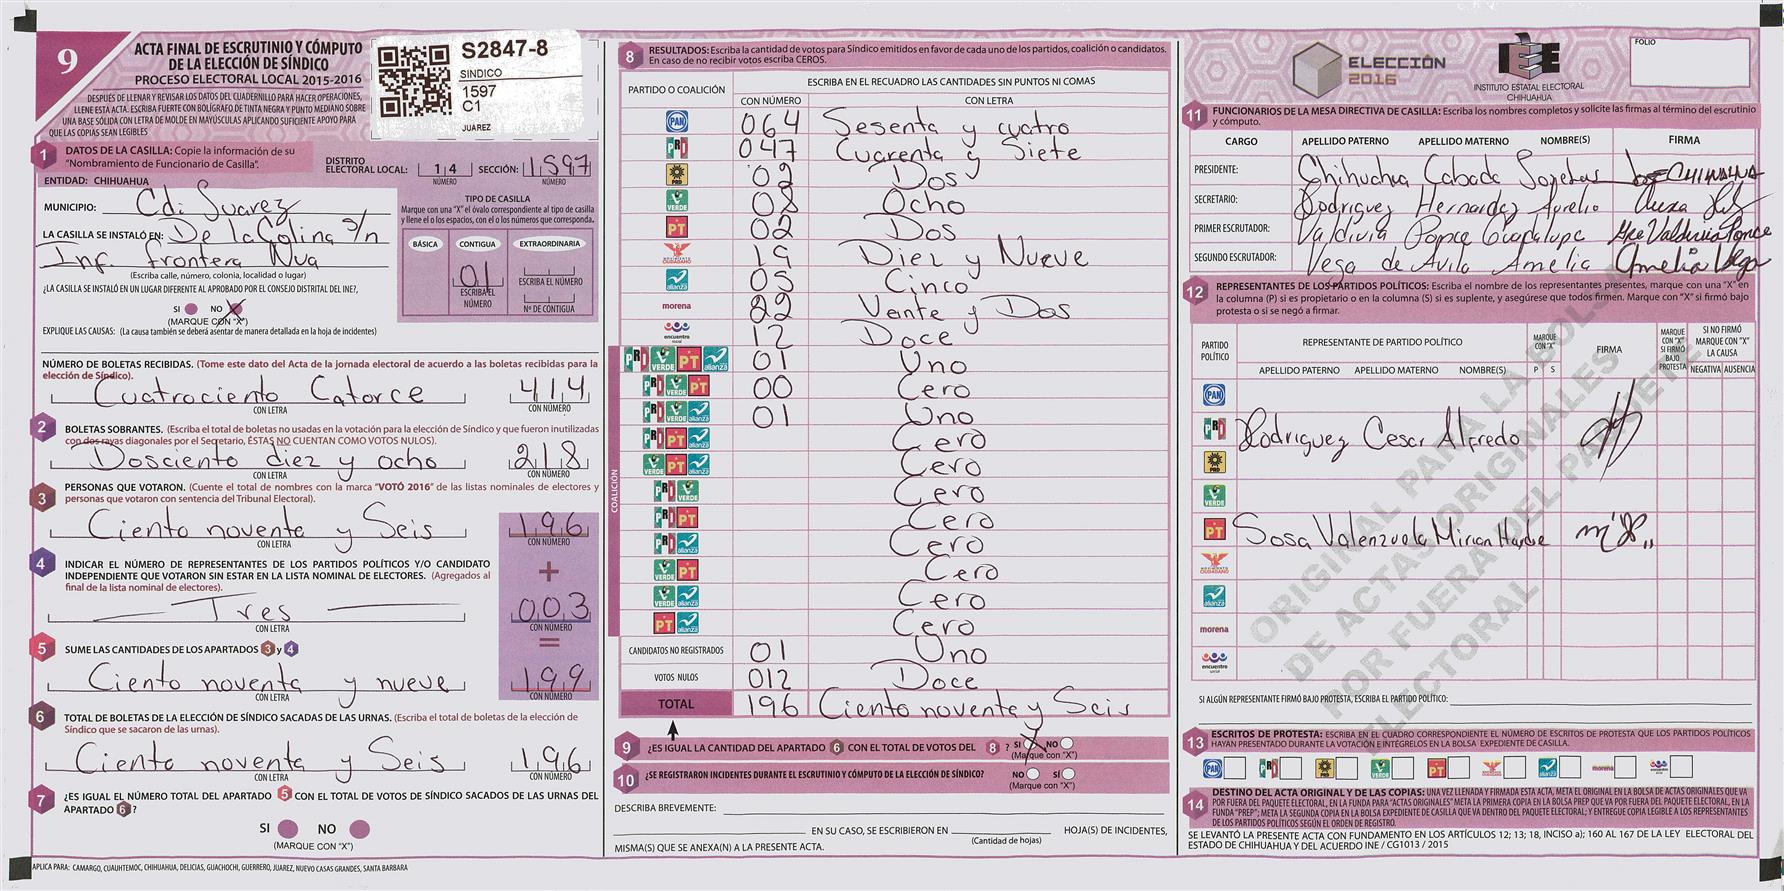 9
ACTA FINAL DE ESCRUTINIO Y CÓMPUTO
DE LA ELECCIÓN DE SÍNDICO
PROCESO ELECTORAL LOCAL 2015-2016
DESPUÉS DE LLENAR Y REVISAR LOS DATOS DEL CUADERNILLO PARA HACER OPERACIONES,
LLENE ESTA ACTA. ESCRIBA FUERTE CON BOLÍGRAFO DE TINTA NEGRA Y PUNTO MEDIANO SOBRE
UNA BASE SÓLIDA CON LETRA DE MOLDE EN MAYÚSCULAS APLICANDO SUFICIENTE APOYO PARA
QUE LAS COPIAS SEAN LEGIBLES
S2847-8
SINDICO
1597
C1
JUAREZ
1 DATOS DE LA CASILLA: Copie la información de su
"Nombramiento de Funcionario de Casilla".
DISTRITO ELECTORAL LOCAL: 14 NÚMERO SECCIÓN: 1597 NÚMERO
ENTIDAD: CHIHUAHUA
MUNICIPIO: Cd. Juarez
LA CASILLA SE INSTALÓ EN: De la Colina s/n
Inf. frontera Nva
(Escriba calle, número, colonia, localidad o lugar)
¿LA CASILLA SE INSTALÓ EN UN LUGAR DIFERENTE AL APROBADO POR EL CONSEJO DISTRITAL DEL INE?,
SI NO X
(MARQUE CON "X")
EXPLIQUE LAS CAUSAS: (La causa también se deberá asentar de manera detallada en la hoja de incidentes)
TIPO DE CASILLA
Marque con una "X" el óvalo correspondiente al tipo de casilla
y llene el o los espacios, con el o los números que corresponda.
BÁSICA CONTIGUA EXTRAORDINARIA
01
ESCRIBA EL NÚMERO
ESCRIBA EL NÚMERO
Nº DE CONTIGUA
NÚMERO DE BOLETAS RECIBIDAS. (Tome este dato del Acta de la jornada electoral de acuerdo a las boletas recibidas para la
elección de Síndico).
Cuatrociento Catorce 414
CON LETRA CON NÚMERO
2 BOLETAS SOBRANTES. (Escriba el total de boletas no usadas en la votación para la elección de Síndico y que fueron inutilizadas
con dos rayas diagonales por el Secretario, ÉSTAS NO CUENTAN COMO VOTOS NULOS).
Dosciento diez y ocho 218
CON LETRA CON NÚMERO
3 PERSONAS QUE VOTARON. (Cuente el total de nombres con la marca "VOTÓ 2016" de las listas nominales de electores y
personas que votaron con sentencia del Tribunal Electoral).
Ciento noventa y Seis 196
CON LETRA CON NÚMERO
4 INDICAR EL NÚMERO DE REPRESENTANTES DE LOS PARTIDOS POLÍTICOS Y/O CANDIDATO
INDEPENDIENTE QUE VOTARON SIN ESTAR EN LA LISTA NOMINAL DE ELECTORES. (Agregados al
final de la lista nominal de electores).
+
Tres 003
CON LETRA CON NÚMERO
=
5 SUME LAS CANTIDADES DE LOS APARTADOS 3 y 4
Ciento noventa y nueve 199
CON LETRA CON NÚMERO
6 TOTAL DE BOLETAS DE LA ELECCIÓN DE SÍNDICO SACADAS DE LAS URNAS. (Escriba el total de boletas de la elección de
Síndico que se sacaron de las urnas).
Ciento noventa y Seis 196
CON LETRA CON NÚMERO
7 ¿ES IGUAL EL NÚMERO TOTAL DEL APARTADO 5 CON EL TOTAL DE VOTOS DE SÍNDICO SACADOS DE LAS URNAS DEL
APARTADO 6?
SI NO
(MARQUE CON "X")
APLICA PARA: CAMARGO, CUAUHTEMOC, CHIHUAHUA, DELICIAS, GUACHOCHI, GUERRERO, JUAREZ, NUEVO CASAS GRANDES, SANTA BARBARA
8 RESULTADOS: Escriba la cantidad de votos para Síndico emitidos en favor de cada uno de los partidos, coalición o candidatos.
En caso de no recibir votos escriba CEROS.
PARTIDO O COALICIÓN
ESCRIBA EN EL RECUADRO LAS CANTIDADES SIN PUNTOS NI COMAS
CON NÚMERO CON LETRA
PAN 064 Sesenta y cuatro
PRI 047 Cuarenta y Siete
PRD 02 Dos
VERDE 08 Ocho
PT 02 Dos
MOVIMIENTO CIUDADANO 19 Diez y Nueve
alianza 05 Cinco
morena 22 Vente y Dos
encuentro social 12 Doce
COALICIÓN
PRI VERDE PT alianza 01 Uno
PRI VERDE PT 00 Cero
PRI VERDE alianza 01 Uno
PRI PT alianza Cero
VERDE PT alianza Cero
PRI VERDE Cero
PRI PT Cero
PRI alianza Cero
VERDE PT Cero
VERDE alianza Cero
PT alianza Cero
CANDIDATOS NO REGISTRADOS 01 Uno
VOTOS NULOS 012 Doce
TOTAL 196 Ciento noventa y Seis
9 ¿ES IGUAL LA CANTIDAD DEL APARTADO 6 CON EL TOTAL DE VOTOS DEL 8 ? SI X NO
(Marque con "X")
10 ¿SE REGISTRARON INCIDENTES DURANTE EL ESCRUTINIO Y CÓMPUTO DE LA ELECCIÓN DE SÍNDICO? NO SÍ
(Marque con "X")
DESCRIBA BREVEMENTE:
EN SU CASO, SE ESCRIBIERON EN HOJA(S) DE INCIDENTES,
(Cantidad de hojas)
MISMA(S) QUE SE ANEXA(N) A LA PRESENTE ACTA.
ELECCIÓN
2016
IEE
INSTITUTO ESTATAL ELECTORAL
CHIHUAHUA
FOLIO
11 FUNCIONARIOS DE LA MESA DIRECTIVA DE CASILLA: Escriba los nombres completos y solicite las firmas al término del escrutinio
y cómputo.
CARGO APELLIDO PATERNO APELLIDO MATERNO NOMBRE(S) FIRMA
PRESIDENTE: Cabada
SECRETARIO: Rodriguez Hernandez Aurelio
PRIMER ESCRUTADOR: Valdivia Ponce Guadalupe
SEGUNDO ESCRUTADOR: Vega de Avila Amelia Amelia Vega
12 REPRESENTANTES DE LOS PARTIDOS POLÍTICOS: Escriba el nombre de los representantes presentes, marque con una "X" en
la columna (P) si es propietario o en la columna (S) si es suplente, y asegúrese que todos firmen. Marque con "X" si firmó bajo
protesta o si se negó a firmar.
PARTIDO POLÍTICO
REPRESENTANTE DE PARTIDO POLÍTICO
APELLIDO PATERNO APELLIDO MATERNO NOMBRE(S)
MARQUE CON "X" P S
FIRMA
MARQUE CON "X" SI FIRMÓ BAJO PROTESTA
SI NO FIRMÓ MARQUE CON "X" LA CAUSA
NEGATIVA AUSENCIA
PAN
PRI Rodriguez Cesar Alfredo
PRD
VERDE
PT Sosa Valenzuela
MOVIMIENTO CIUDADANO
alianza
morena
encuentro social
ORIGINAL PARA LA BOLSA
DE ACTAS ORIGINALES
POR FUERA DEL PAQUETE
ELECTORAL
SI ALGÚN REPRESENTANTE FIRMÓ BAJO PROTESTA, ESCRIBA EL PARTIDO POLÍTICO:
13 ESCRITOS DE PROTESTA: ESCRIBA EN EL CUADRO CORRESPONDIENTE EL NÚMERO DE ESCRITOS DE PROTESTA QUE LOS PARTIDOS POLÍTICOS
HAYAN PRESENTADO DURANTE LA VOTACIÓN E INTÉGRELOS EN LA BOLSA EXPEDIENTE DE CASILLA.
PAN PRI PRD VERDE PT alianza morena
14 DESTINO DEL ACTA ORIGINAL Y DE LAS COPIAS: UNA VEZ LLENADA Y FIRMADA ESTA ACTA, META EL ORIGINAL EN LA BOLSA DE ACTAS ORIGINALES QUE VA
POR FUERA DEL PAQUETE ELECTORAL, EN LA FUNDA PARA "ACTAS ORIGINALES" META LA PRIMERA COPIA EN LA BOLSA PREP QUE VA POR FUERA DEL PAQUETE ELECTORAL, EN LA
FUNDA "PREP"; META LA SEGUNDA COPIA EN LA BOLSA EXPEDIENTE DE CASILLA QUE VA DENTRO DEL PAQUETE ELECTORAL; Y ENTREGUE COPIA LEGIBLE A LOS REPRESENTANTES
DE LOS PARTIDOS POLÍTICOS SEGÚN EL ORDEN DE REGISTRO.
SE LEVANTÓ LA PRESENTE ACTA CON FUNDAMENTO EN LOS ARTÍCULOS 12; 13; 18, INCISO a); 160 AL 167 DE LA LEY ELECTORAL DEL
ESTADO DE CHIHUAHUA Y DEL ACUERDO INE / CG1013 / 2015